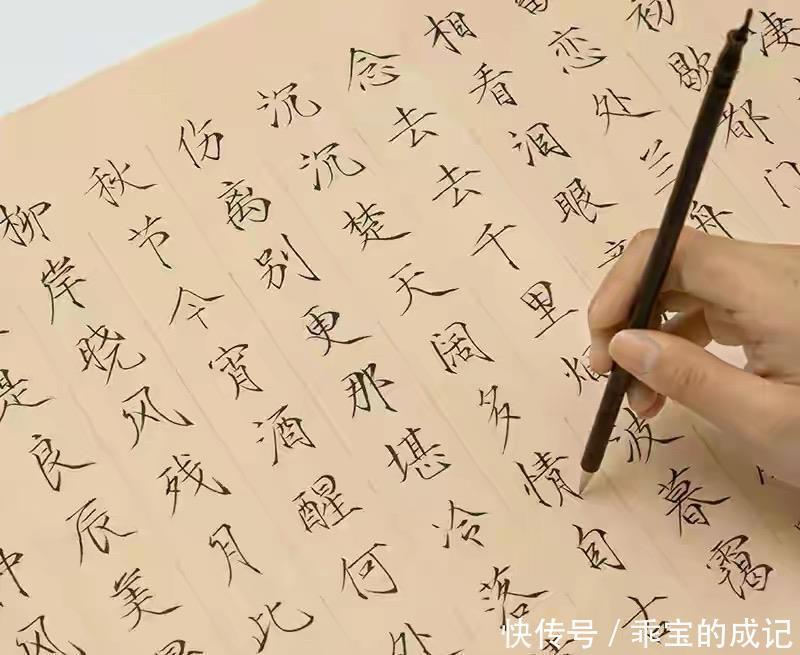 凄
初歇都门
恋处兰舟
相看泪眼
念去去千里烟波暮霭
沉沉楚天阔多情自古
伤离别更那堪冷落
秋节今宵酒醒何处
柳岸晓风残月此
是良辰美
风
快传号/乖宝的成记